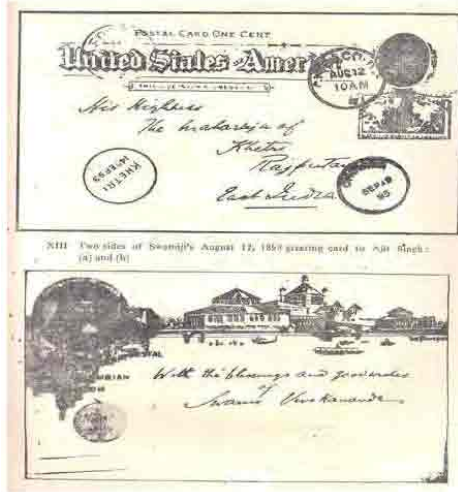 POSTAL CARD ONE CENT
United States America
AUG 12
10 AM
His Highness
The Maharaja of
Khetri
Rajputana
East India
KHETRI
SEP
XIII Two sides of Swamiji's August 12, 1893 greeting card to Ajit Singh :
(a) and (b)
With the blessings and good wishes
of
Swami Vivekananda